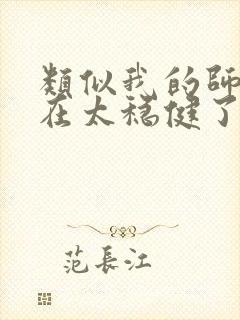 類似我的師
在太穩健了
范長江